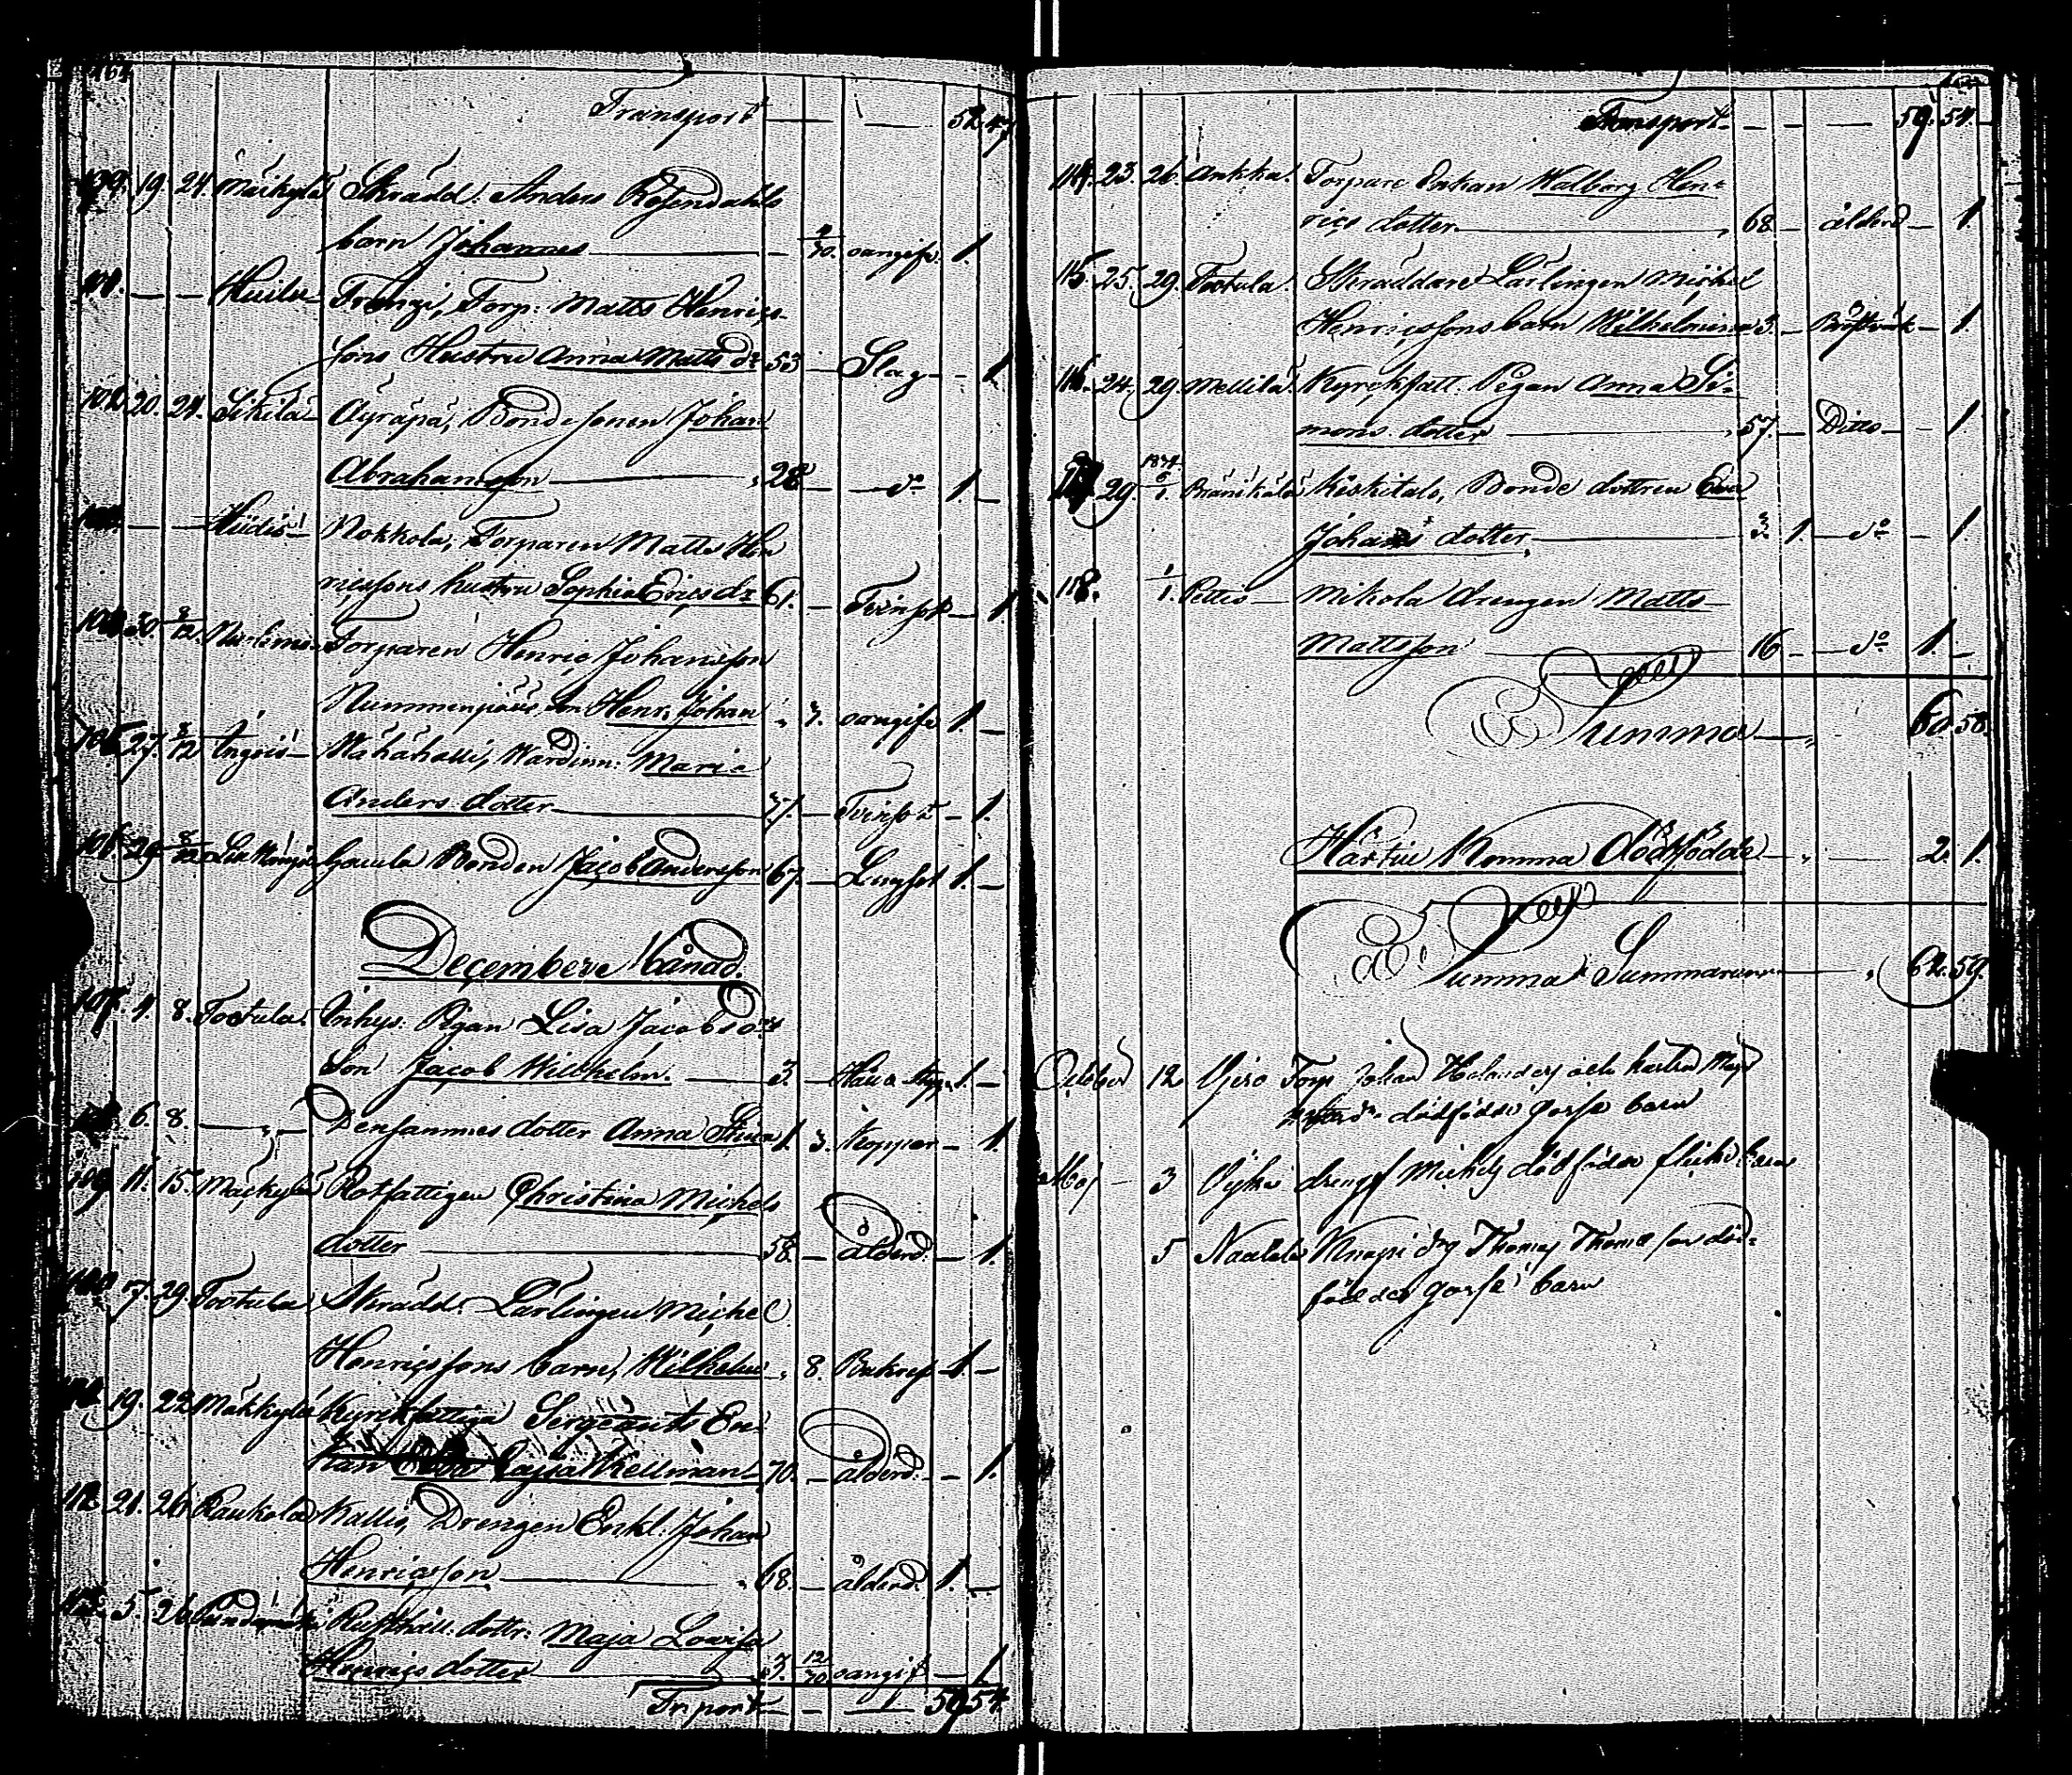 Transport — — 52. 47
19. 24. Mäckylä Skrädd: Anders Rosendahls
barn Johannes — 4/30. oangifv. 1.
101. — — Huilu Frenzi, Torp: Matts Henrics-
sons Hustru Anna Matts dr 53 — Slag — 1.
102. 20. 24. Sikilä Äyräpä, Bondesonen Johan
Abrahamsson — 28 — do 1. —
— — Hiidis Nokkola, Torparen Matts Hen
ricssons hustru Sophia Erics dr 61. — Tvinsot — 1.
30. 8/12. Torparen Henric Johansson
Nummenpää son Henr. Johan 3. oangifv 1. —
105. 27. 8/12 Ingois Wähähalli, Värdinn: Maria
Anders dotter — 37. — Tvinsot — 1.
106. 29 8/12 Bonden Jacob Andersson 67. — Lungsot 1. —
Decembere Månad.
107. 4. 8. Tootula. Inhys: Pigan Lisa Jacobs drs
Son Jacob Wilhelm. — 3. — 1. —
6. 8. — „ — Densammes dotter Anna Stina 1. 3. koppor — 1.
109 11. 15. Mäckylä Rotfattigen Christina Michels
dotter — 58. — ålderd. — 1.
7. 29. Tootula Skrädd: Lärlingen Michel
Henricssons barn, Wilhelm 8. 1. —
19. 22. Mäkkylä Kyrckfattiga Sergeants En-
kan Cajsa Kellman 70. — ålderd. — 1.
112 21. 26. Raukola Kallis, Drengen Enkl. Johan
Henricsson — 68. — ålderd. 1. —
5. 26. Rusthåll: dottr: Maja Lovisa
Henrics dotter — 3. 12/30 oangif — 1
Tr.port — — 59 54.
Transport — — — 59. 54. —
114. 23. 26. Ankka. Torpare Enkan Walborg Hen-
rics dotter. — 68 — ålderd — 1.
115. 25. 29. Tootula. Skräddare Lärlingen Michel
Henricssons barn Wilhelmina 3. — Bröstvärk — 1.
116. 24. 29. Mellilä. Kyrckfatt: Pigan Anna Si-
mons dotter — 57. — Ditto — 1.
117 29. 1874. 6/1. Bränikälä Keskitalo, Bonde dottren Eva
Johans dotter. — 3. 1. — do — 1.
118. 1/1. Pettis — Mikola drengen Matts
Mattsson — 16 — — do 1. —
Summa — 60. 58.
Härtill komma dödfödde — 2. 1.
Summa Summarum — 62. 59.
October 12 Ojais Torp Johan Helanders och hustru Maja
dödfödde gosse barn
Maj — 3 drengs Michels dödfödde flicke barn
5 Naatala Knapi drg Thomas Thomasson död-
födde gosse barn